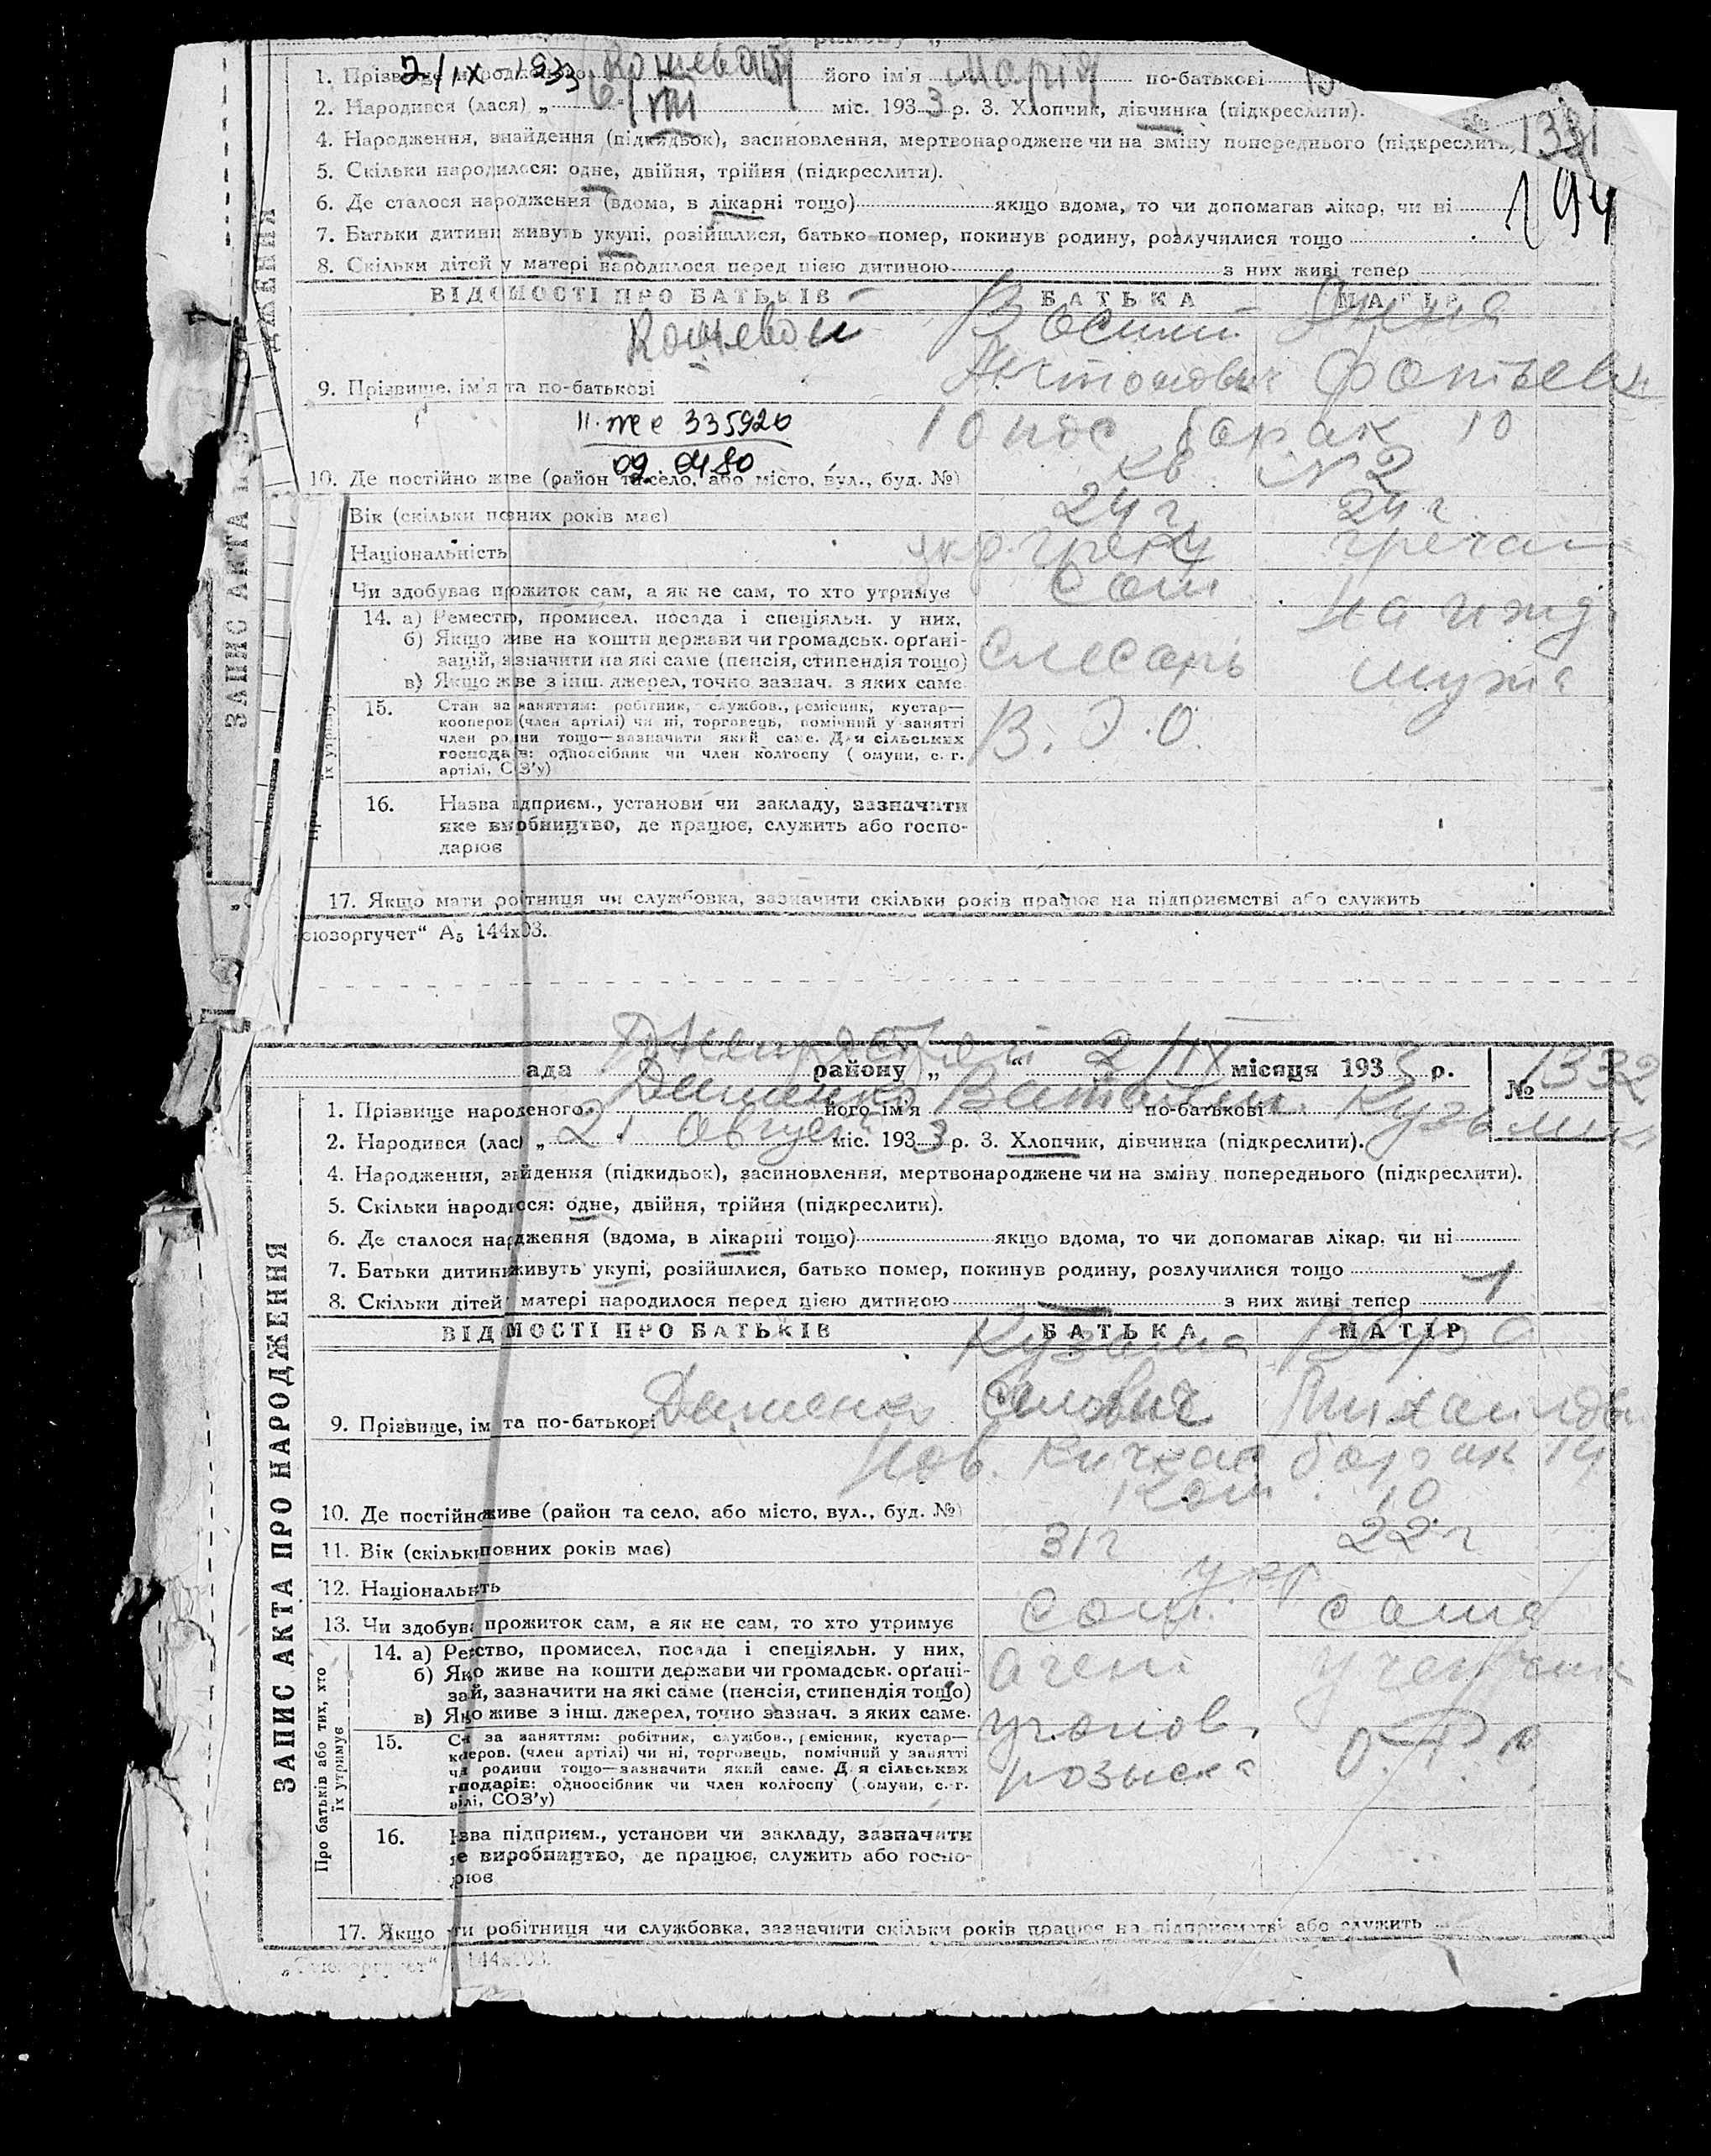 2/IX-1933
1. Прізвище народженого Кошевая його ім'я Марія по-батькові
2. Народився (лася) „ 6/VIII міс. 1933 р. 3. Хлопчик, дівчинка (підкреслити).
№ 1331
4. Народження, знайдення (підкидьок), засиновлення, мертвонароджене чи на зміну попереднього (підкреслити)
194
5. Скільки народилося: одне, двійня, трійня (підкреслити).
6. Де сталося народження (вдома, в лікарні тощо) якщо вдома, то чи допомагав лікар, чи ні
7. Батьки дитини живуть укупі, розійшлися, батько помер, покинув родину, розлучилися тощо
8. Скільки дітей у матері народилося перед цією дитиною — з них живі тепер —
ВІДОМОСТІ ПРО БАТЬКІВ БАТЬКА МАТІР
Кошевой
9. Прізвище, ім'я та по-батькові
10 пос барак 10
335920
09 04 80
кв № 2
10. Де постійно живе (район та село, або місто, вул., буд. №)
Вік (скільки повних років має) 24 г. 24 г.
Національність укр. гречан
Чи здобуває прожиток сам, а як не сам, то хто утримує сам на ижд
14. а) Ремество, промисел, посада і спеціяльн. у них,
б) Якщо живе на кошти держави чи громадськ. органі-
зацій, зазначити на які саме (пенсія, стипендія тощо) слесарь мужа
в) Якщо живе з інш. джерел, точно зазнач. з яких саме
15. Стан за заняттям: робітник, службов., ремісник, кустар—
кооперов. (член артілі) чи ні, торговець, помічний у занятті
член родини тощо—зазначити який саме. Для сільських
господарів: одноосібник чи член колгоспу (комуни, с.-г.
артілі, СОЗ'у)
В. Э. О.
16. Назва підприєм., установи чи закладу, зазначити
яке виробництво, де працює, служить або госпо-
дарює
17. Якщо мати робітниця чи службовка, зазначити скільки років працює на підприємстві або служить
„Союзоргучет“ А₅ 144х03.
ЗАПИС АКТА ПРО НАРОДЖЕННЯ
ада району „ “ 2/IX місяця 1933 р. № 1332
1. Прізвище народженого Дашенко його ім'я по-батькові Кузьмич
2. Народився (лася) „ 21 Август міс. 1933 р. 3. Хлопчик, дівчинка (підкреслити).
4. Народження, знайдення (підкидьок), засиновлення, мертвонароджене чи на зміну попереднього (підкреслити).
5. Скільки народилося: одне, двійня, трійня (підкреслити).
6. Де сталося народження (вдома, в лікарні тощо) якщо вдома, то чи допомагав лікар, чи ні
7. Батьки дитини живуть укупі, розійшлися, батько помер, покинув родину, розлучилися тощо
8. Скільки дітей у матері народилося перед цією дитиною — з них живі тепер 1
ВІДОМОСТІ ПРО БАТЬКІВ БАТЬКА МАТІР
Кузьма Вера
9. Прізвище, ім'я та по-батькові Дашенко
Нов. Кичкас барак 14
ком. 10
10. Де постійно живе (район та село, або місто, вул., буд. №)
11. Вік (скільки повних років має) 31 г 22 г
12. Національність укр.
13. Чи здобуває прожиток сам, а як не сам, то хто утримує сам. сама
Про батьків або тих, хто їх утримує
14. а) Ремество, промисел, посада і спеціяльн. у них,
б) Якщо живе на кошти держави чи громадськ. органі-
зацій, зазначити на які саме (пенсія, стипендія тощо) агент
в) Якщо живе з інш. джерел, точно зазнач. з яких саме. уголов.
15. Стан за заняттям: робітник, службов., ремісник, кустар—
кооперов. (член артілі) чи ні, торговець, помічний у занятті
член родини тощо—зазначити який саме. Для сільських
господарів: одноосібник чи член колгоспу (комуни, с.-г.
артілі, СОЗ'у)
розыска
16. Назва підприєм., установи чи закладу, зазначити
яке виробництво, де працює, служить або госпо-
дарює
17. Якщо мати робітниця чи службовка, зазначити скільки років працює на підприємстві або служить
„Союзоргучет“ 144х03.